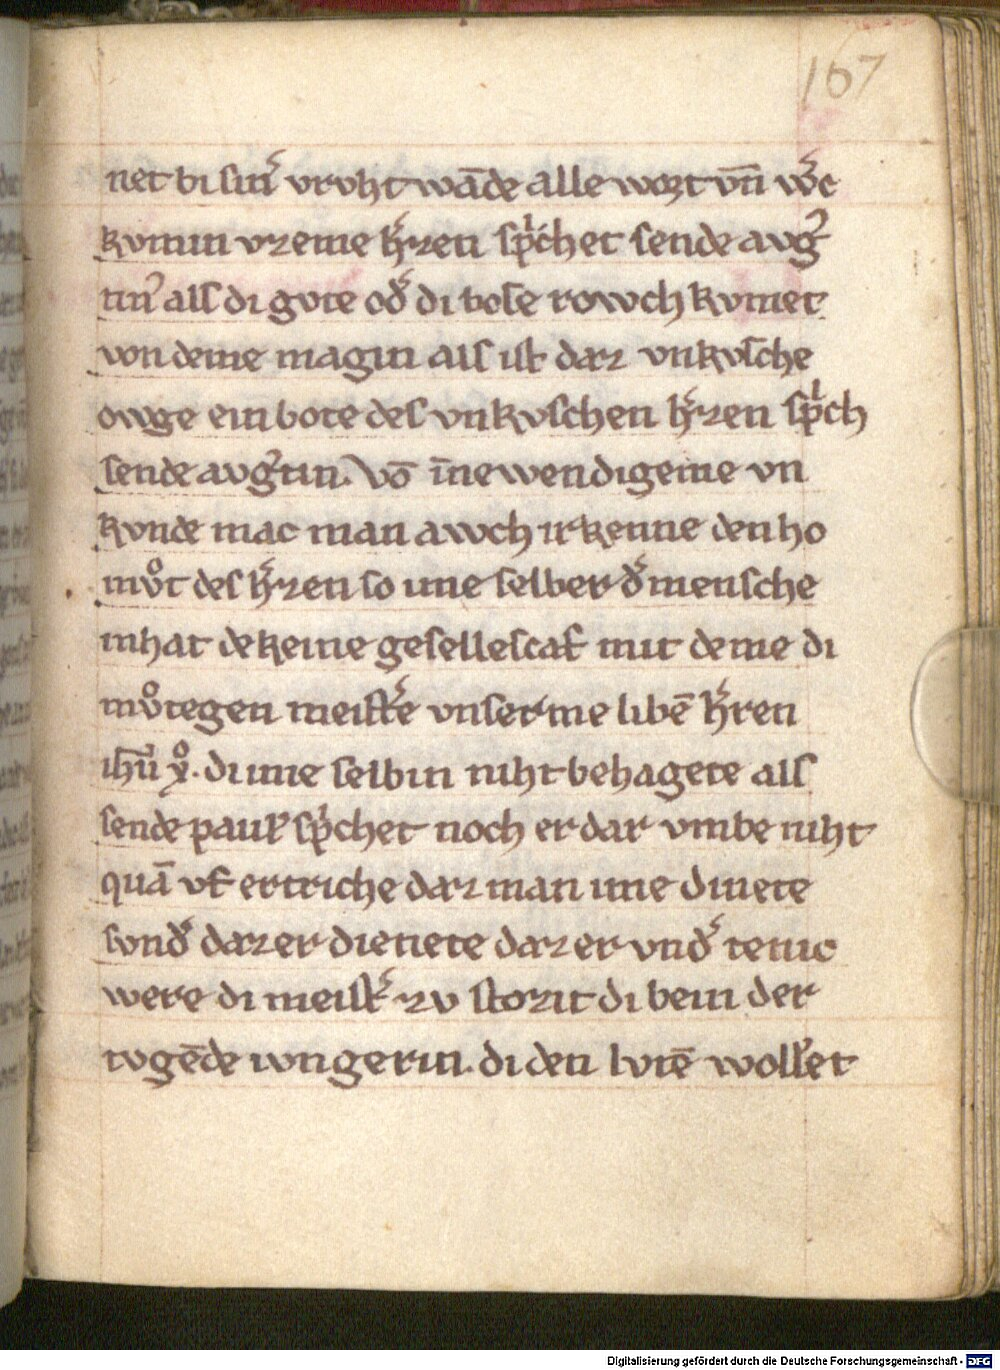 167
net bi sin͛ vruht wāde alle wort vn̄ w͛c
kvmin vzeme h͛zen spͥchet sende avg᷒
tin᷒ als di gvte od͛ di bose rowch kvmet
von deme magin als ist daz vnkvsche
owge ein bote des vnkvschen h͛zen spͥch
sende avg᷒tin. Vō īnewendigeme vn
kvnde mac man awch irkenne den ho
mvͦt des h͛zen so ime selber d͛ mensche
inhat dekeine gesellescaf mit deme di
mvͦtegen meist͛e vnserme libē h͛ren
ih̄u xͦ. di ime selbin niht behagete als
sende paul᷒ spͥchet noch er dar vmbe niht
quā vf ertriche daz man ime dinete
svnd͛ daz er dienete daz er vnd͛ tenic
were di meist͛ zv storit di bein der
tvgēde ivngerin. di den lvtē wollet
Digitalisierung gefördert durch die Deutsche Forschungsgemeinschaft - DFG